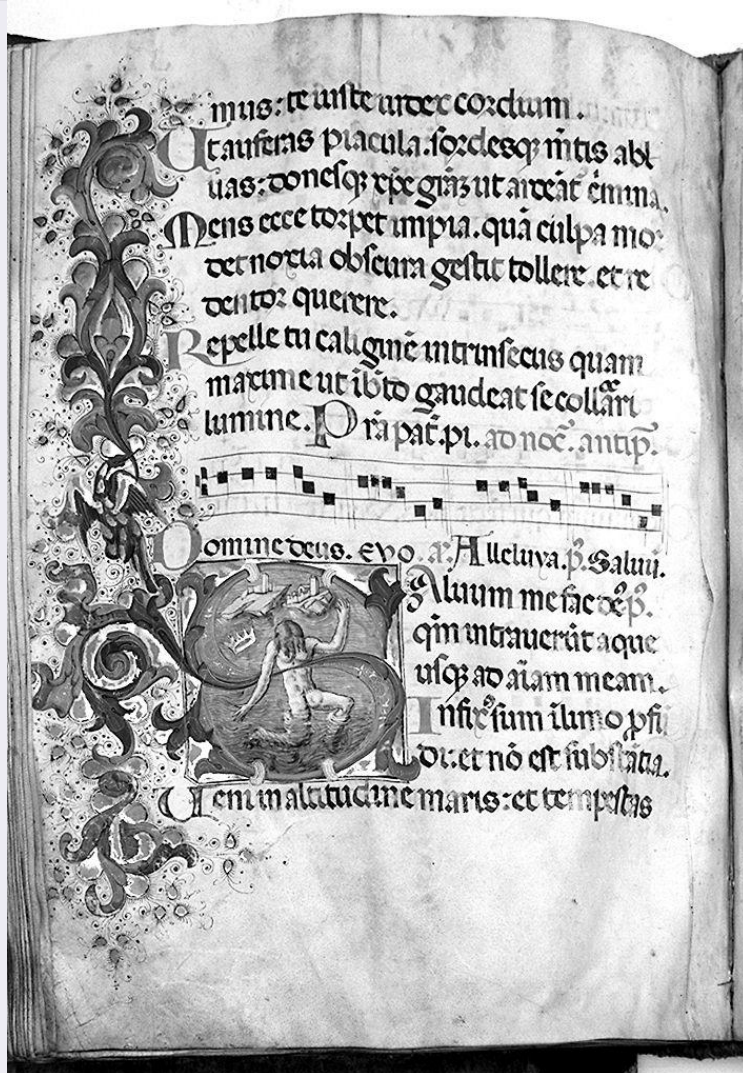 mus: te iuste iudex cordium.
Ut auferas piacula. sordesqꝫ m̄tis abl
uas: donesqꝫ xp̄e gr̄aꝫ ut arceāt c̄mina.
Mens ecce torpet impia. quā culpa mor
det noxia obscura gestit tollere. et re
demtor querere.
Repelle tu caliginē intrinsecus quam
maxime ut ī b̄to gaudeat se collocari
lumine. Pr̄a pat̄. pi. ad noc̄. antip̄.
Domine deus. evo. a. Alleluya. p̄. Saluū.
Saluum me fac dē p̄.
qm̄ intrauerūt aque
usqꝫ ad aīam meam.
Infixꝰ sum ī limo ꝓfū
di: et nō est substātia.
Ueni in altitudine maris: et tempestas